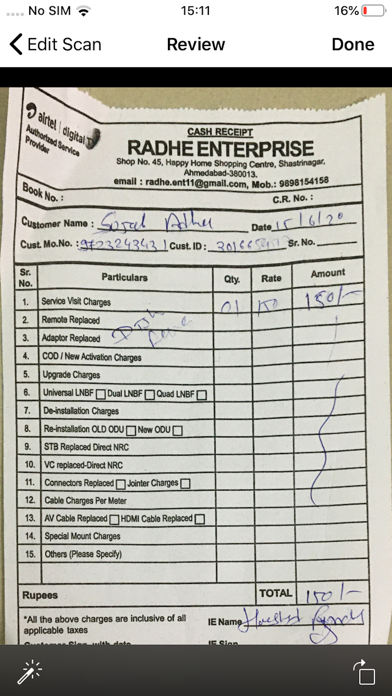 No SIM 15:11 16%
Edit Scan Review Done
airtel | digital
Authorized Service
Provider
CASH RECEIPT
RADHE ENTERPRISE
Shop No. 45, Happy Home Shopping Centre, Shastrinagar,
Ahmedabad-380013.
email : radhe.ent11@gmail.com, Mob.: 9898154158
Book No. : C.R. No. :
Customer Name : Date 15/6/20
Cust. Mo.No. : Cust. ID : Sr. No.
Sr. No. Particulars Qty. Rate Amount
1. Service Visit Charges 01 150 150/-
2. Remote Replaced
3. Adaptor Replaced
4. COD / New Activation Charges
5. Upgrade Charges
6. Universal LNBF Dual LNBF Quad LNBF
7. De-installation Charges
8. Re-installation OLD ODU New ODU
9. STB Replaced-Direct NRC
10. VC replaced-Direct NRC
11. Connectors Replaced Jointer Charges
12. Cable Charges Per Meter
13. AV Cable Replaced HDMI Cable Replaced
14. Special Mount Charges
15. Others (Please Specify)
Rupees TOTAL 150/-
*All the above charges are inclusive of all IE Name
applicable taxes
Customer Sign with date IE Sign